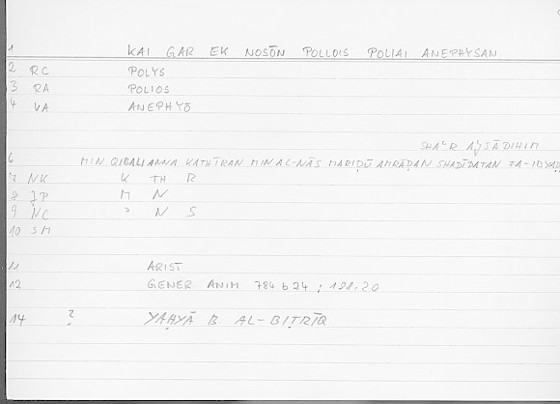 1 KAI GAR EK NOSŌN POLLOIS POLIAI ANEPHYSAN
2 RC POLYS
3 RA POLIOS
4 VA ANEPHYŌ
SHAʿR AJSĀDIHIM
6 MIN QIBALI ANNA KATHĪRAN MIN AL-NĀS MARIḌŪ AMRĀḌAN SHADĪDATAN FA-IBYAḌ
7 NK K TH R
8 JP M N
9 NC ʾ N S
10 SM
11 ARIST
12 GENER ANIM 784 b 24 ; 191.20
14 ? YAḤYĀ B AL-BIṬRĪQ